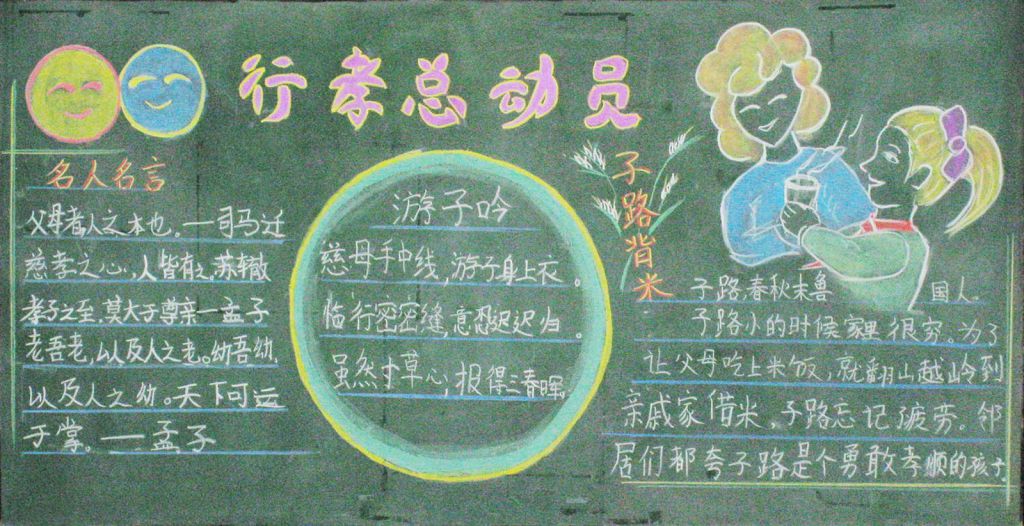 行孝总动员
名人名言
父母者人之本也。——司马迁
慈孝之心,人皆有之,苏辙
孝子之至,莫大于尊亲—孟子
老吾老,以及人之老。幼吾幼,
以及人之幼。天下可运
于掌。——孟子
游子吟
慈母手中线,游子身上衣。
临行密密缝,意恐迟迟归。
虽然寸草心,报得三春晖
子路背米
子路,春秋末鲁国人。
子路小的时候家里很穷。为了
让父母吃上米饭,就翻山越岭到
亲戚家借米,子路忘记疲劳。邻
居们都夸子路是个勇敢孝顺的孩子